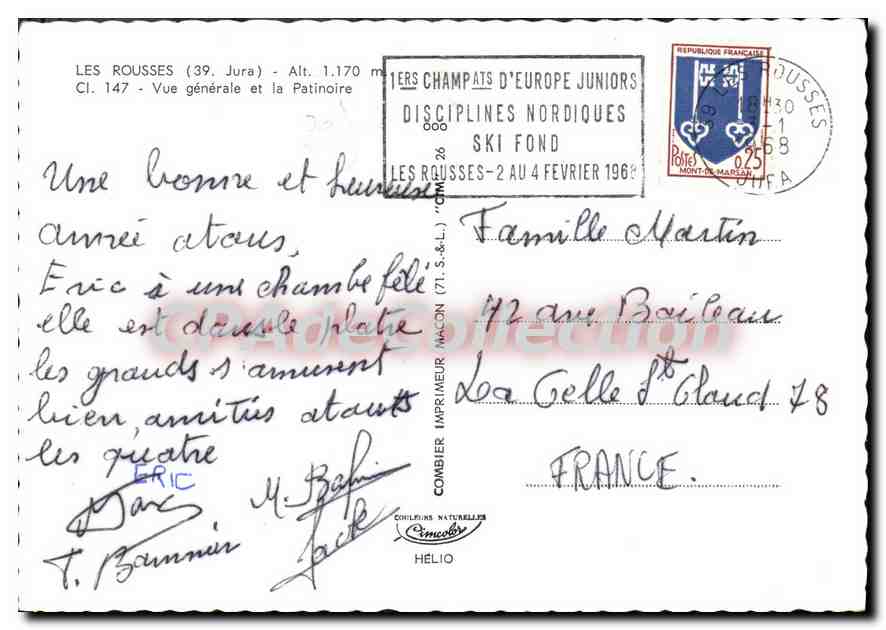 LES ROUSSES (39. Jura) - Alt. 1.170 m
Cl. 147 - Vue générale et la Patinoire
1ERS CHAMPATS D'EUROPE JUNIORS
DISCIPLINES NORDIQUES
SKI FOND
LES ROUSSES-2 AU 4 FEVRIER 1968
REPUBLIQUE FRANÇAISE
POSTES 0,25
MONT-DE-MARSAN
39 LES ROUSSES
18H30
-1
68
JURA
Une bonne et heureuse
année atous,
Eric à une chambe fêlé
elle est dansle platre
les grands s'amusent
bien, amitiés atous
les quatre
ERIC
Marc
M.
Jack
T.
COMBIER IMPRIMEUR MACON (71. S.-&-L.) "CIM" 26 000
Famille Martin
42 ave Boileau
La Celle St Cloud 78
FRANCE.
COULEURS NATURELLES
Cimcolor
HÉLIO
CPAdeCollection